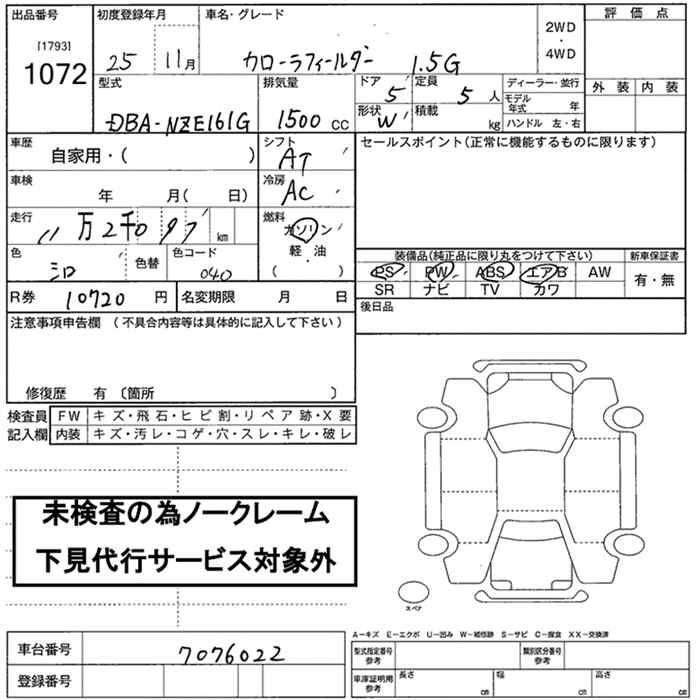 出品番号 初度登録年月 車名・グレード 評価点
[1793]
1072
25 11月 カローラフィールダー 1.5G
2WD
・
4WD
外装 内装
型式 排気量 ドア 定員 ディーラー・並行
DBA-NZE161G 1500 cc 5 5 人 モデル年式 年
形状 積載
W kg ハンドル 左・右
車歴 自家用・( )
シフト AT
セールスポイント(正常に機能するものに限ります)
車検 年 月( 日)
冷房 AC
走行 11万2千097 km
燃料 ガソリン
軽・油
( ・ )
色 色替 色コード
040
装備品(純正品に限り丸をつけて下さい) 新車保証書
PS PW ABS エアB AW
SR ナビ TV カワ
有・無
R券 10720 円 名変期限 月 日
後日品
注意事項申告欄 (不具合内容等は具体的に記入して下さい)
修復歴 有 〔箇所 〕
検査員 FW キズ・飛石・ヒビ割・リペア跡・X要
記入欄 内装 キズ・汚レ・コゲ・穴・スレ・キレ・破レ
未検査の為ノークレーム
下見代行サービス対象外
スペア
A-キズ E-エクボ U-凹み W-補修跡 S-サビ C-腐食 XX-交換済
車台番号 7076022
登録番号
型式指定番号 参考 類別区分番号 参考
車庫証明用 参考 長さ cm 幅 cm 高さ cm